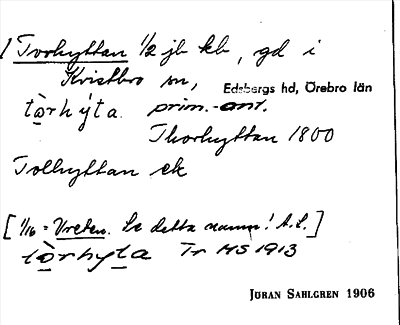 Torhyttan 1/2 jb kb, gd i
Kvistbro sn, Edsbergs hd, Örebro län
tò̱rhy̌ta. prim.-ant.
Thorhyttan 1800
Tolhyttan ek
[1/16 = Vreten. Se detta namn! A.L.]
tò̱rhy̱ta Tr MS 1913
JÖRAN SAHLGREN 1906